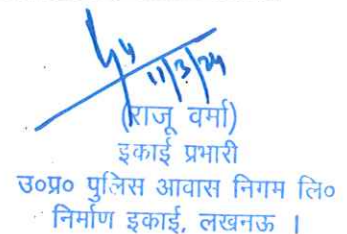 11/3/24
(राजू वर्मा)
इकाई प्रभारी
उ०प्र० पुलिस आवास निगम लि०
निर्माण इकाई, लखनऊ ।